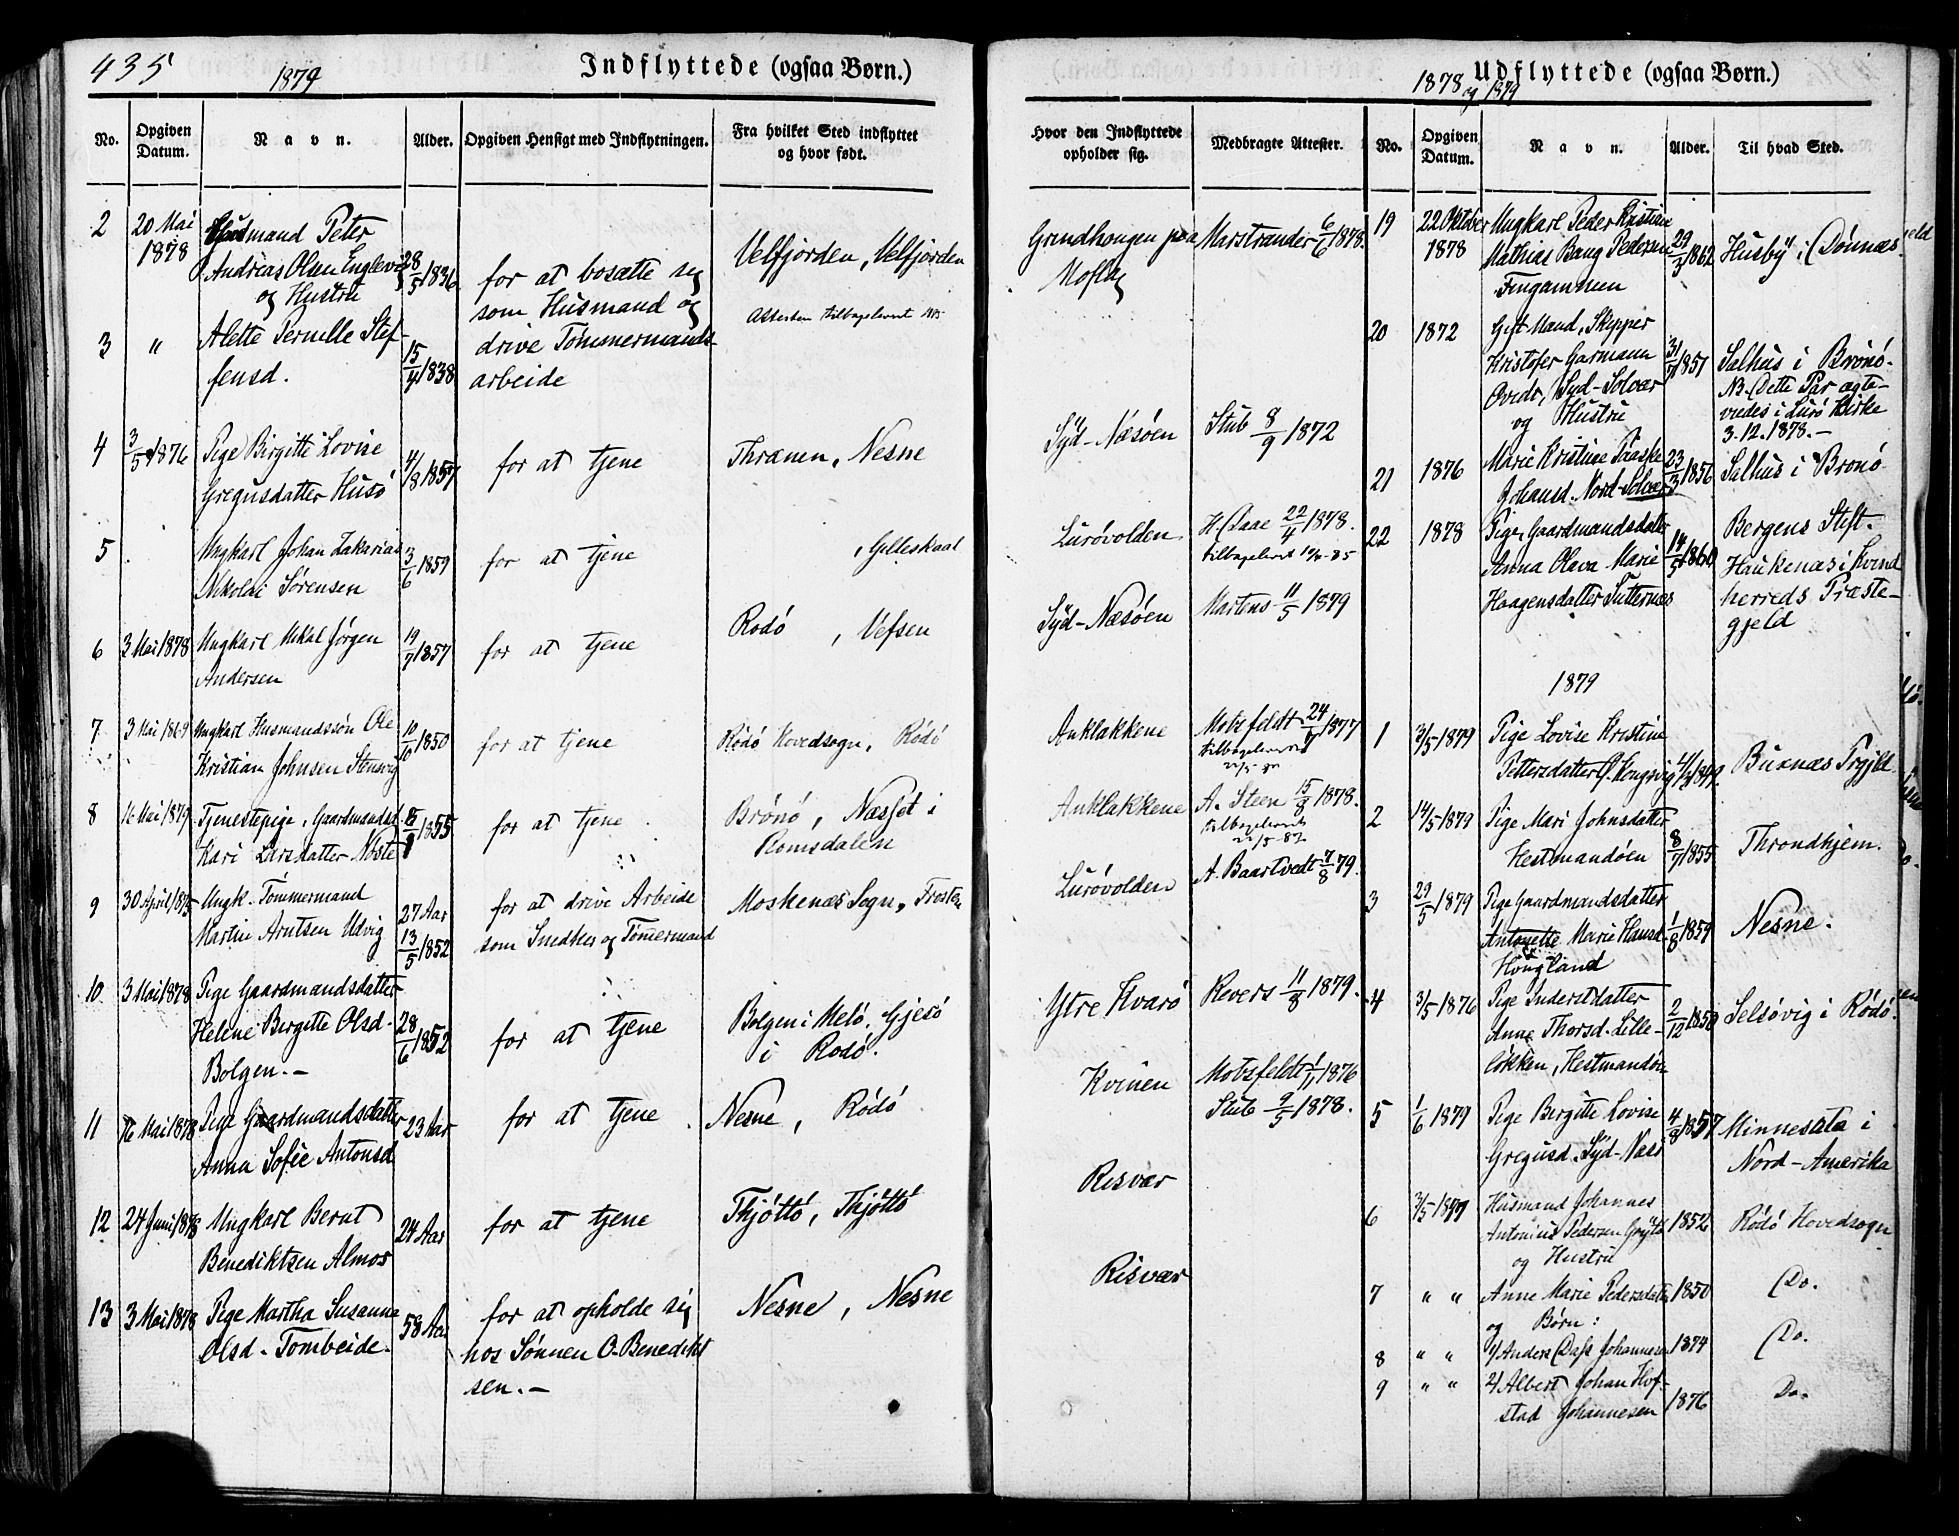 435
1879
Indflyttede (ogsaa Børn.)
No.
Opgiven Datum.
Navn.
Alder.
Opgiven Hensigt med Indflytningen.
Fra hvilket Sted indflyttet og hvor født.
2
20 Mai 1878
Husmand Peter
Andreas Olsen
og Hustru
28/5 1836
for at bosætte sig
som Husmand og
drive Tømmermands-
arbeide
Velfjorden, Velfjorden
Attesten tilbageleveret
3
"
Alette Pernelle Stef-
fensd.
15/4 1838
4
1876
Pige Birgitte Lovise
Gregusdatter Husø
4/8 1857
for at tjene
Thrænen, Nesne
5
Ungkarl Johan Zakarias
Nikolai Sørensen
3/6 1859
for at tjene
, Gilleskaal
6
3 Mai 1878
Ungkarl Mikal Jørgen
Andersen
19/7 1857
for at tjene
Rødø , Vefsen
7
3 Mai 1869
Ungkarl Husmandssøn Ole
Kristian Johnsen Stensvig
10/10 1850
for at tjene
Rødø Hovedsogn, Rødø
8
16 Mai 1879
Tjenestepige, Gaardmandsd.
Kari Larsdatter Nøste
1855
for at tjene
Brønø, Næsset i
Romsdalen
9
30 April 1875
Ungk. Tømmermand
Martin Arntsen Udvig
27 Aar
13/5 1852
for at drive Arbeide
som Snedker og Tømmermand
Moskenæs Sogn, Frosten
10
3 Mai 1878
Pige Gaardmandsdatter
Helene Birgitte Olsd.
Bolgen. -
28/6 1852
for at tjene
Bolgen i Melø, Gjesø
i Rødø.
11
16 Mai 1878
Pige Gaardmandsdatter
Anna Sofie Antonsd
23 Aar
for at tjene
Nesne, Rødø
12
24 Juni 1878
Ungkarl Bernt
Benediktsen Almos
24 Aar
for at tjene
Thjøttø, Thjøttø
13
3 Mai 1878
Pige Martha Susanna
Olsd. Tombeide.
58 Aar
for at opholde sig
hos Sønnen O. Benedikt
sen. -
Nesne, Nesne
1878 og 1879
Udflyttede (ogsaa Børn.)
Hvor den Indflyttede opholder sig.
Medbragte Attester.
No.
Opgiven Datum.
Navn.
Alder.
Til hvad Sted.
Grindhougen paa
Moflag
Marstrander 6/6 1878.
Syd-Næsøen
Stub 8/9 1872
Lurøvolden
H. Daae 22/4 1878.
tilbageleveret
Syd-Næsøen
Martens 11/5 1879
Anklakkene
Mobsfeldt 24/ 1877
tilbageleveret
Anklakkene
A. Steen 15/8 1878.
tilbageleveret
22/5 - 82
Lurøvolden
A. Baartvedt 7/8 79.
Ytre Kvarø
Revers 11/8 1879.
Kvinen
Mobsfeldt 1/11 1876
Stub 9/5 1878.
Risvær
Risvær
19
22 Oktober 1878
Ungkarl Peder Kristian
Mathias Bang Pedersen
29/3 1862
Husby i Dønnæs
20
1872
Gift Mand, Skipper
Kristofer Garmann
Qvedt, Syd-Solvær
og Hustru
31/7 1851
Salhus i Brønø.
NB. Dette Par ægte-
viedes i Lurø Kirke
3.12.1878. -
21
1876
Marie Kristine
Johansd. Nord-Solvær
23/3 1856
Salhus i Brønø
22
1878
Pige, Gaardmandsdatter
Anna Olava Marie
Haagensdatter Sutternæs
14/5 1860
Bergens Stift.
Haukenæs i Kvind
herreds Præste-
gjeld
1879
1
3/5 1879
Pige Lovise Kristine
Pettersdatter Kongsvig
Buxnæs Prgjld
2
14/5 1879
Pige Mari Johnsdatter
Hestmandøen
8/7 1855
Throndhjem.
3
29/5 1879
Pige Gaardmandsdatter
Antonette Marie Hansd
Hougland
1/8 1859
Nesne.
4
3/5 1876
Pige Inderstdatter
Anne Thorsd. Lille-
løkken, Hestmandøen
2/12 1858
Selsøvig i Rødø.
5
1/6 1879
Pige Bergitte Lovise
Gregusd. Syd-Næsø
4/8 1857
Minnesota i
Nord-Amerika
6
3/5 1877
Husmand Johannes
Antonius Pedersen
og Hustru
1852
Rødø Hovedsogn
7
" "
Anne Marie Pedersdatter
og Børn:
1850
Do.
8
" "
1/ Anders Dass Johannesen
1874
Do.
9
" "
2/ Albert Johan Hof-
stad Johannesen
1876
Do.